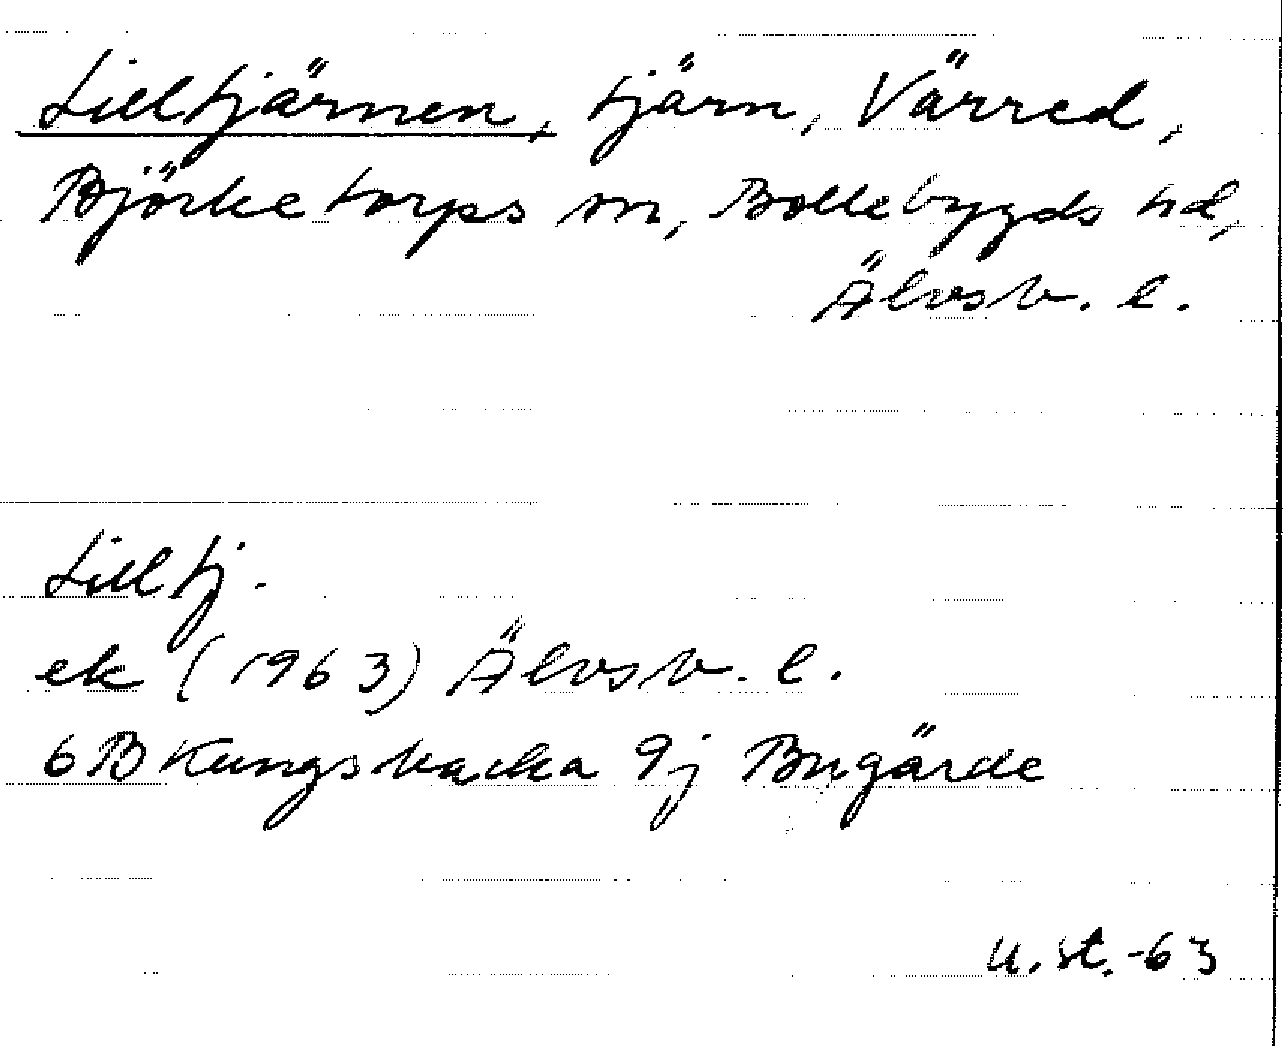 Lilltjärnen, tjärn, Värred,
Björketorps sn, Bollebygds hd,
Älvsb. l.
Lilltj.
ek (1963) Älvsb. l.
6B Kungsbacka 9j Bugärde
U. St. -63